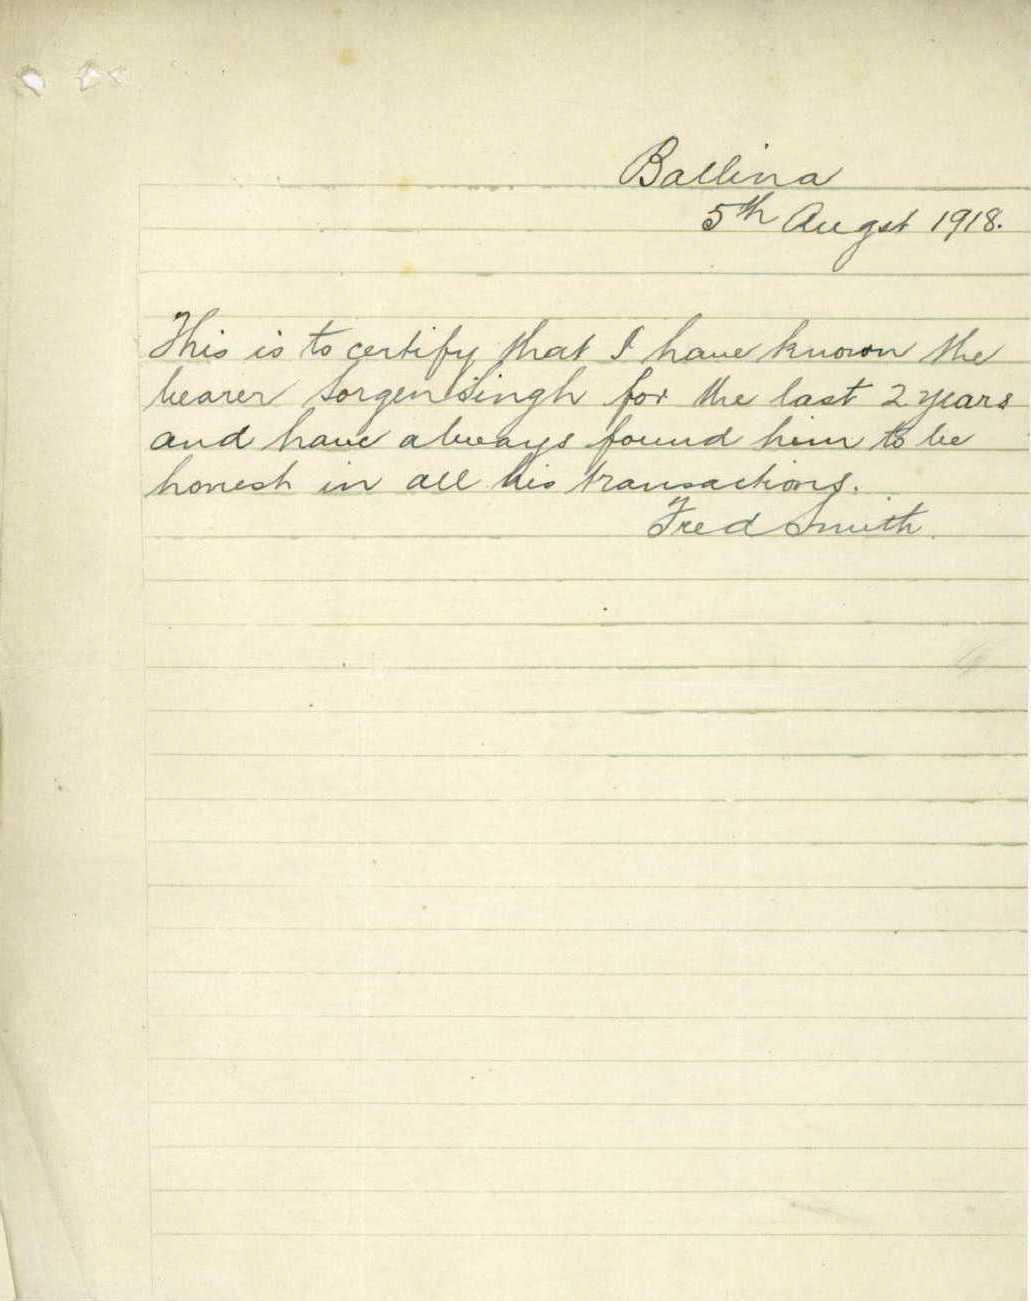 Ballina
5th Augst 1918.
This is to certify that I have known the
bearer Sorgen Singh for the last 2 years
and have always found him to be
honest in all his transactions.
Fred Smith